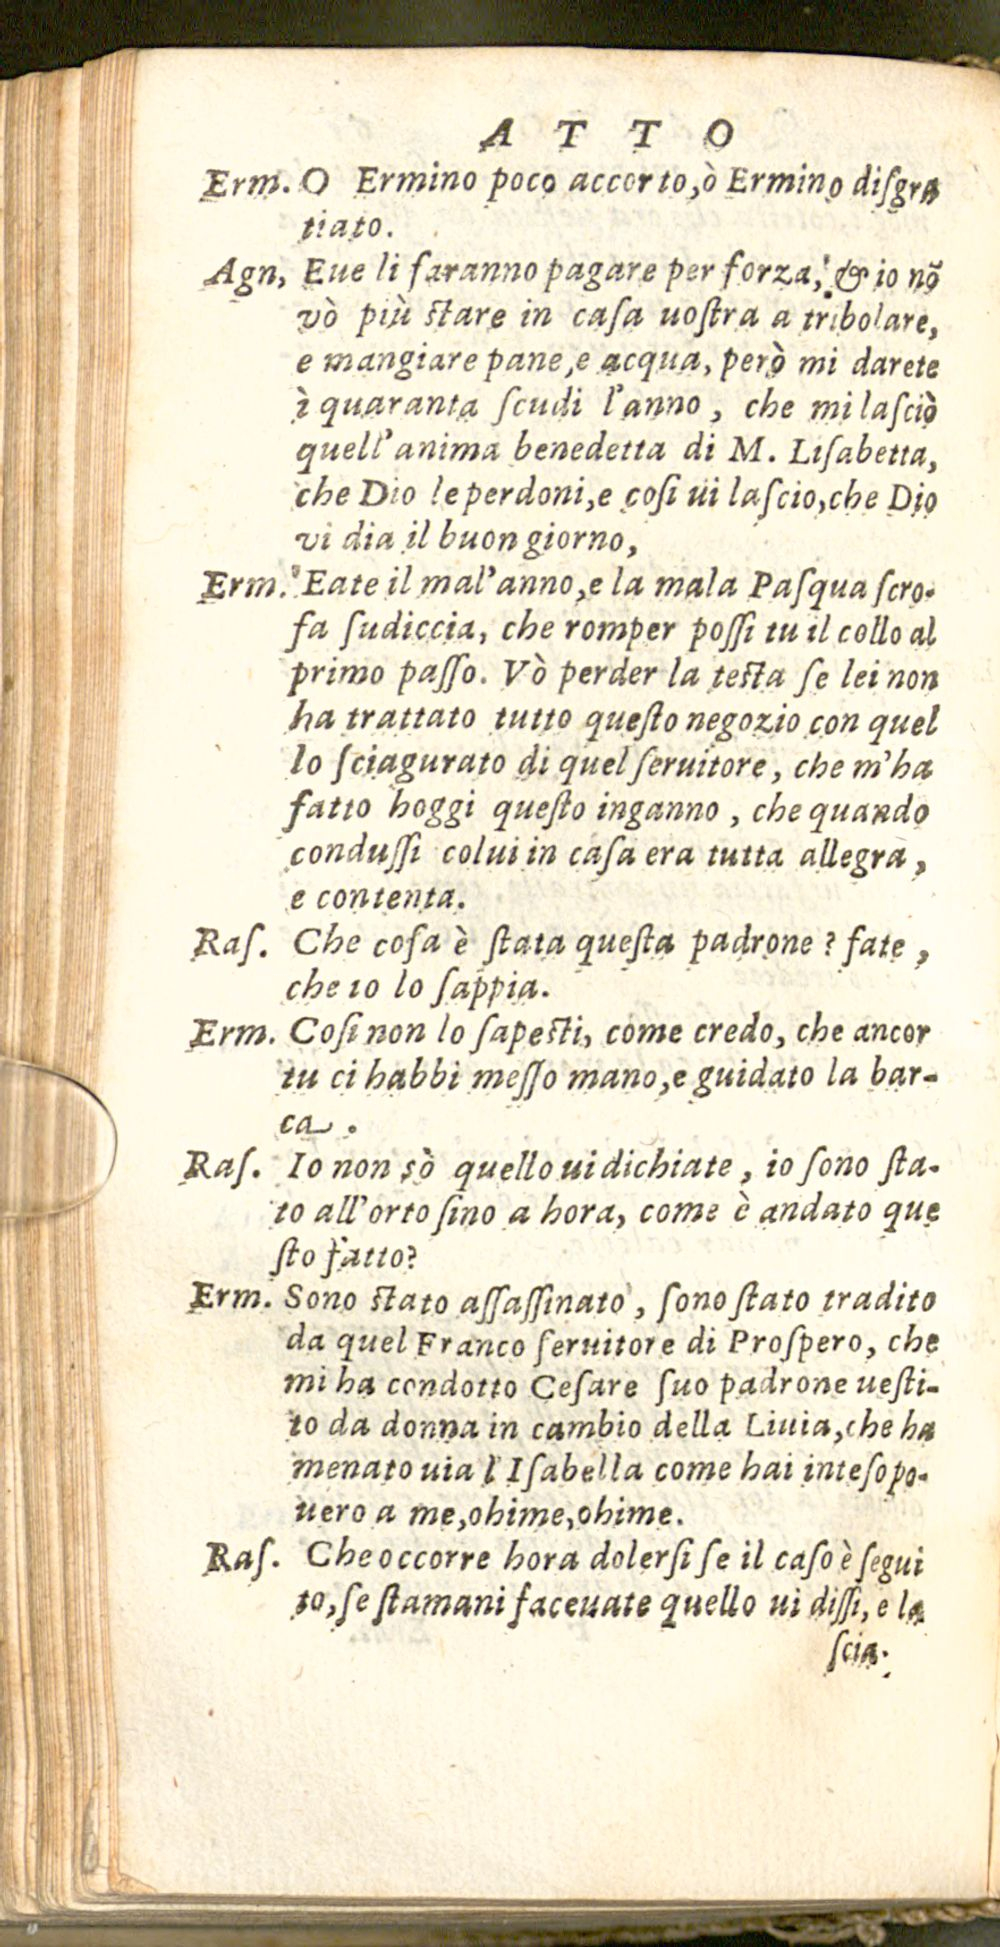 ATTO
Erm. O Ermino poco accorto,ò Ermino disgra
tiato.
Agn, Eue li faranno pagare per forza, & io nõ
vò più stare in casa uostra a tribolare,
e mangiare pane,e acqua, però mi darete
ì quaranta scudi l'anno, che mi lasciò
quell'anima benedetta di M. Lisabetta,
che Dio le perdoni,e cosi ui lascio,che Dio
vi dia il buon giorno,
Erm. Eate il mal'anno,e la mala Pasqua scro-
fa sudiccia, che romper possi tu il collo al
primo passo. Vò perder la testa se lei non
ha trattato tutto questo negozio con quel
lo sciagurato di quel seruitore, che m'ha
fatto hoggi questo inganno, che quando
condussi colui in casa era tutta allegra,
e contenta.
Ras. Che cosa è stata questa padrone? fate,
che io lo sappia.
Erm. Cosi non lo sapesti, come credo, che ancor
tu ci habbi messo mano,e guidato la bar-
ca.
Ras. Io non sò quello ui dichiate, io sono sta-
to all'orto sino a hora, come è andato que
sto fatto?
Erm. Sono stato assassinato, sono stato tradito
da quel Franco seruitore di Prospero, che
mi ha condotto Cesare suo padrone uesti-
to da donna in cambio della Liuia,che ha
menato uia l'Isabella come hai inteso po-
uero a me,ohime,ohime.
Ras. Che occorre hora dolersi se il caso è segui
to,se stamani faceuate quello ui dissi, e la
scia-